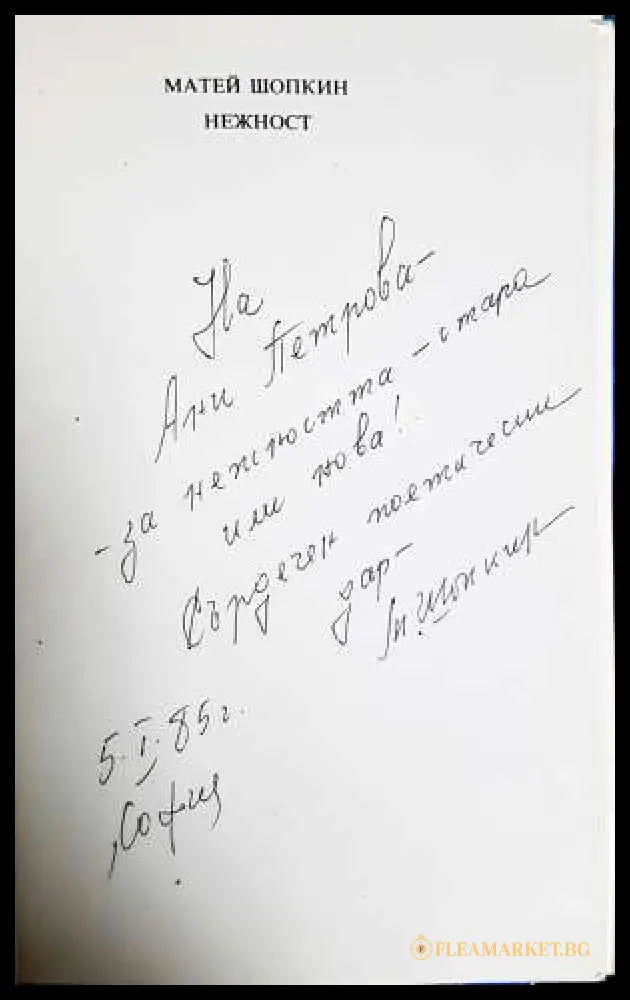 МАТЕЙ ШОПКИН
НЕЖНОСТ
На
Ани Петрова-
-за нежността - стара
или нова!
Сърдечен поетически
дар-
М. Шопкин
5.I.85г.
София
FLEAMARKET.BG